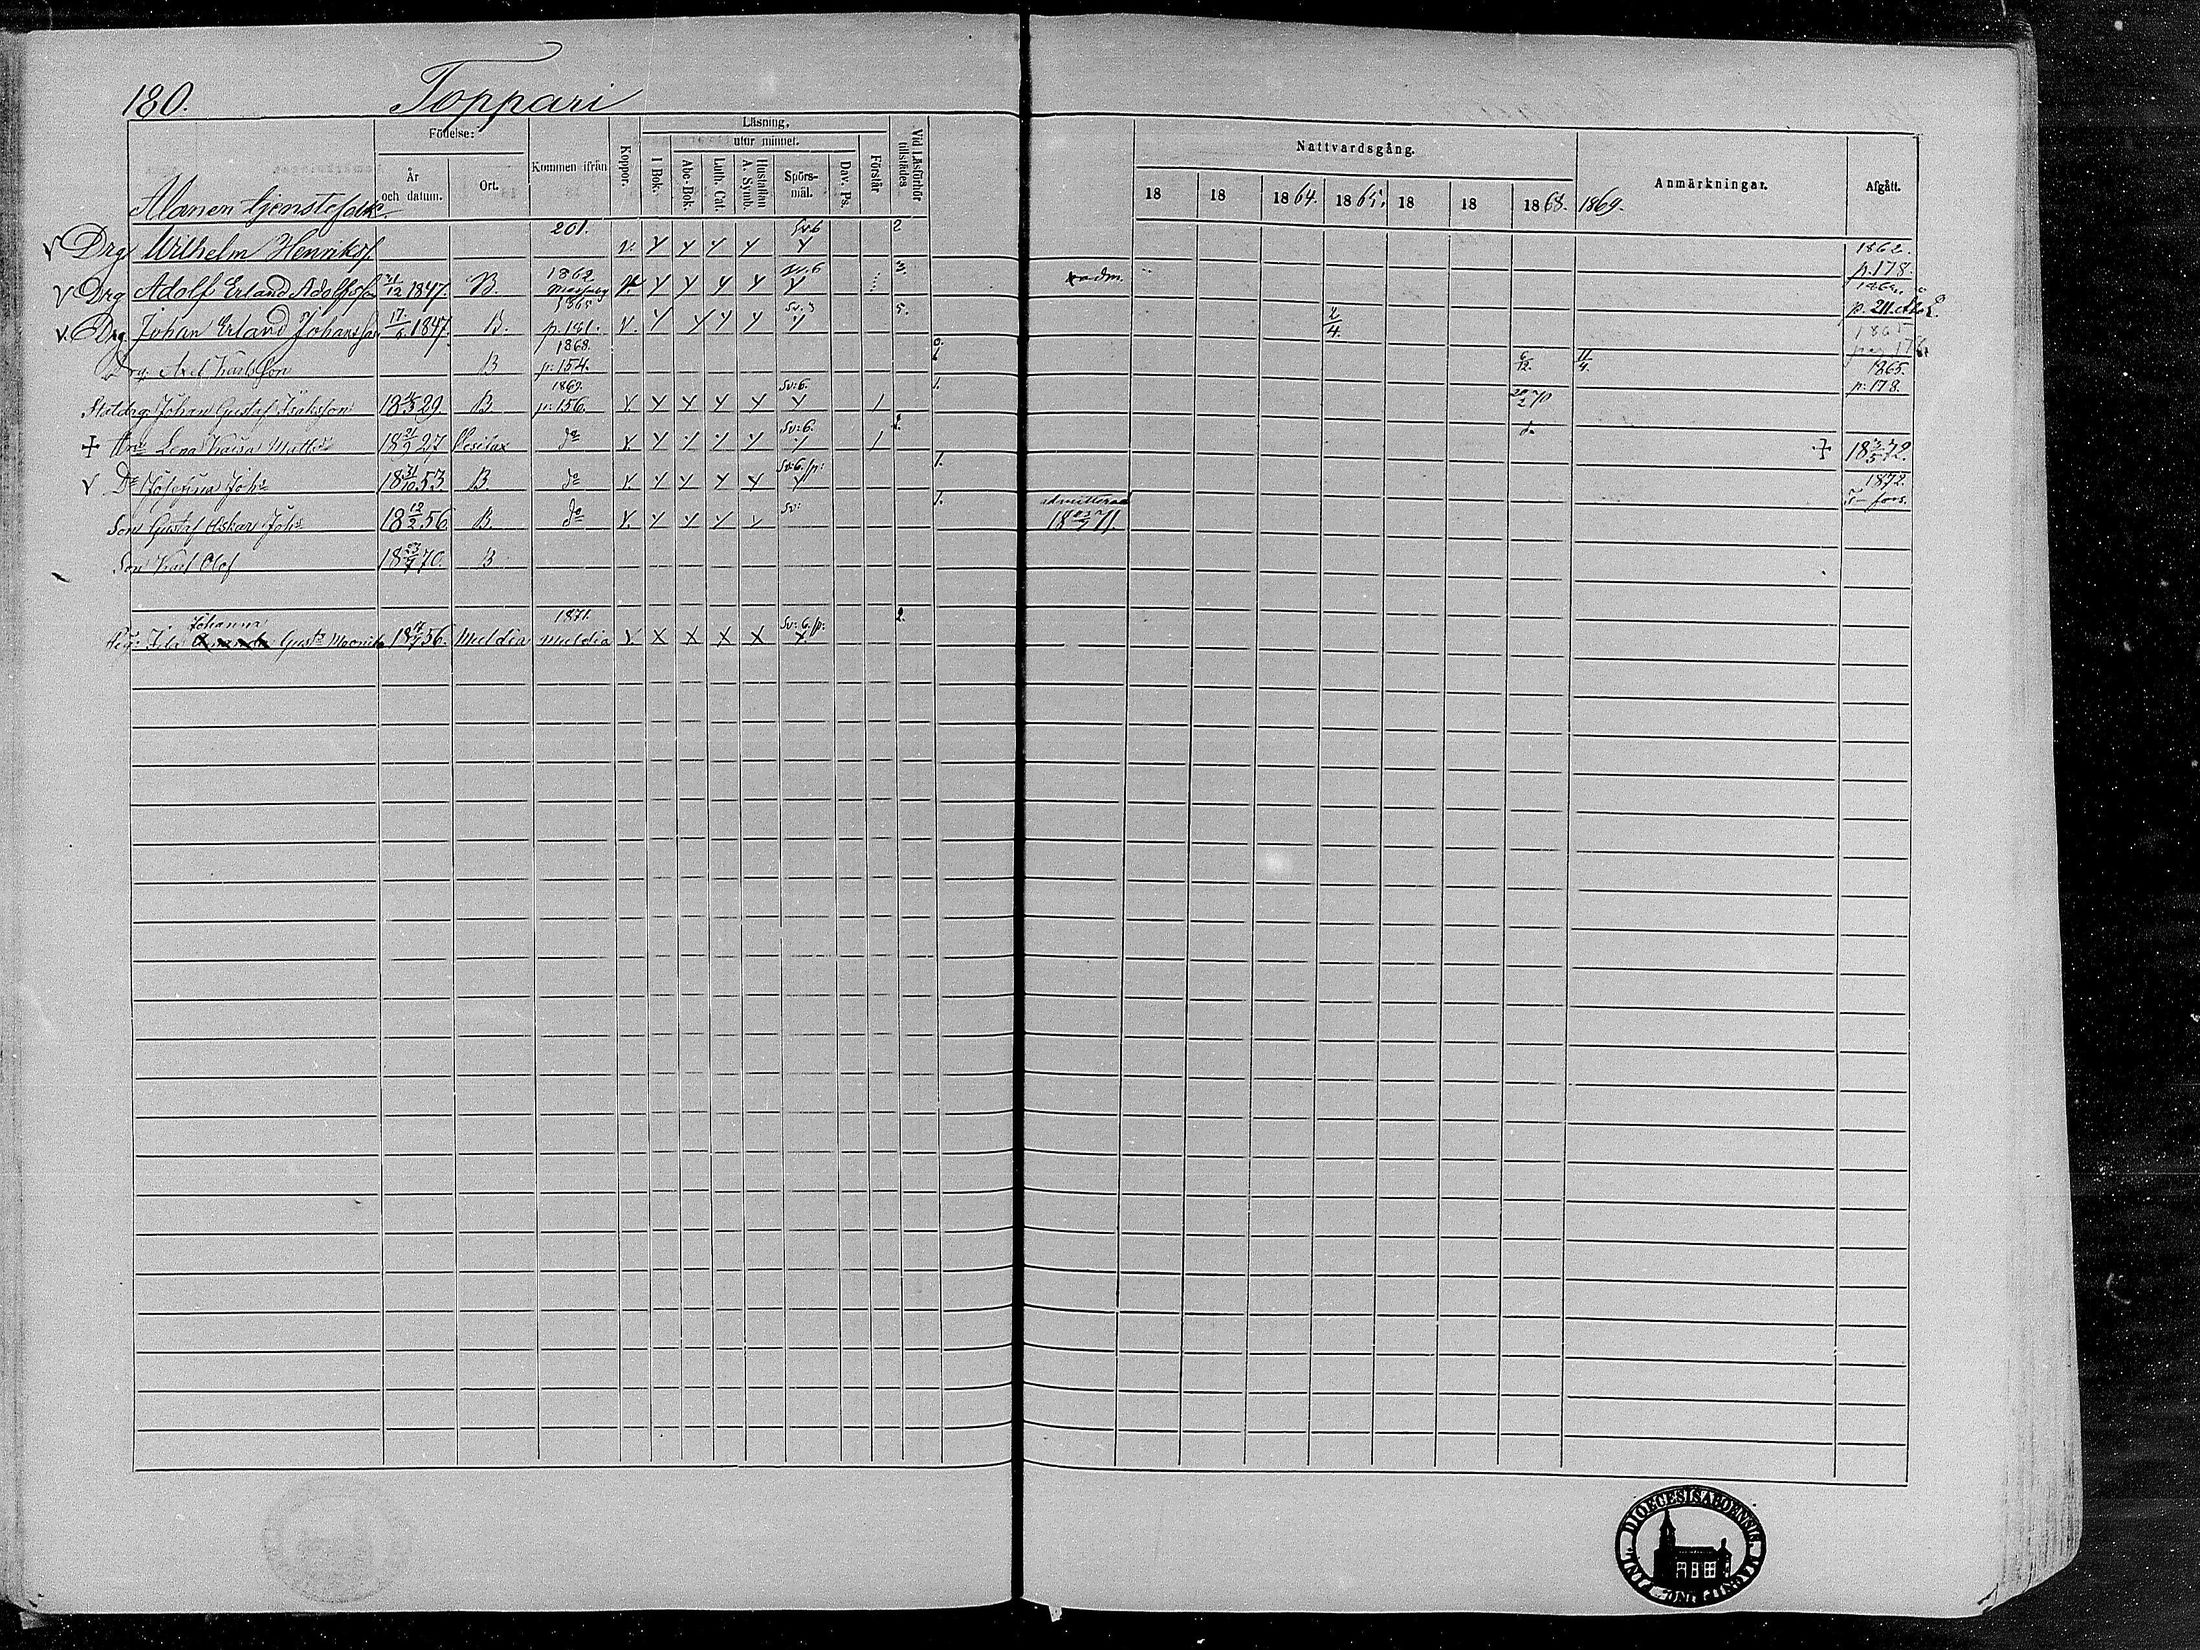 180. Toppari
Födelse: Läsning, Vid Läsförhör tillstädes
utur minnet. Nattvardsgång.
År och datum. Ort. Kommen ifrån Koppor. I Bok. Abc-Bok. Luth. Cat. Hustaflan A. Symb. Spörsmål. Dav. Ps. Förstår 18 18 1864. 1865. 18 18 1868. 1869. Anmärkningar. Afgått.
Alanen tjenstefolk
201. Sv 6 2
v Drg Wilhelm Henrikss. v. 1862. p. 178.
1862 Sv. 6 3.
v Drg Adolf Erland Adolfsson 21/12 1847. B. adm. p. 211.
1865 Sv. 3 5.
v. Drg Johan Erland Johansson 17/6 1847. B. p. 181. v. 2/4. 1865
1868.
Drg Axel Karlsson B p. 154. 6/12. 11/4. 1865. p. 178.
1869. Sv: 6. 1.
Johan Gustaf Isaksson 18 29. B. p. 156. v. 1 20/2 70
Sv: 6.
+ Lena Kaisa Matts 18 21/9 27 do v. 1 do + 18 72.
Sv: 6. p: 1.
v Dr Josefina Johs 18 31/10 53. B. do v. 1872.
Sv: 1. admitterad
Son Gustaf Oskar Johs 18 12/2 56 B. do v. 18 71
Son Karl Olof 18 70. B
Johanna 1871. Sv: 6. p: 2.
Ida Gusts 18 56. v.
DIOECESIS ABOENSIS. MAGNI DUC. FINL.